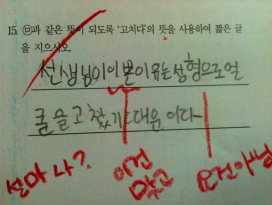 15. ㉤과 같은 뜻이 되도록 '고치다'의 뜻을 사용하여 짧은 글
을 지으시오.
선생님이 이쁜이유는 성형으로얼
굴을 고쳤기 때문 이다
설마 나? 이건 맞고 PC 아님